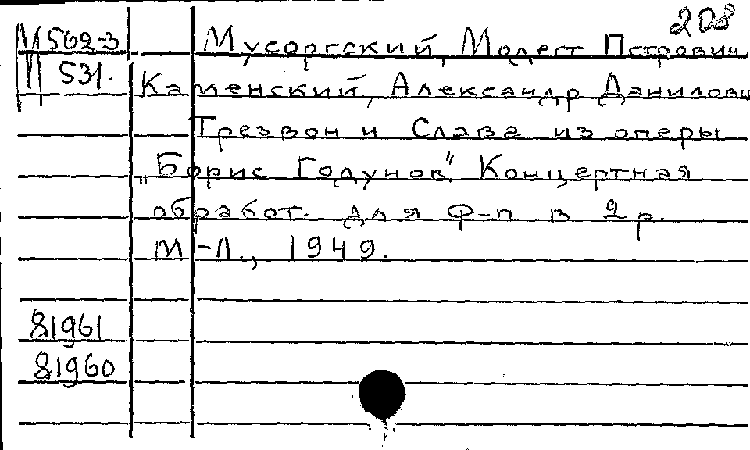 208
М562-3 Мусоргский, Модест Петрович
П 531. Каменский, Александр Данилович
Трезвон и Слава из оперы
„Борис Годунов". Концертная
обработ. для ф-п в 2 р.
М-Л., 1949.
81961
81960